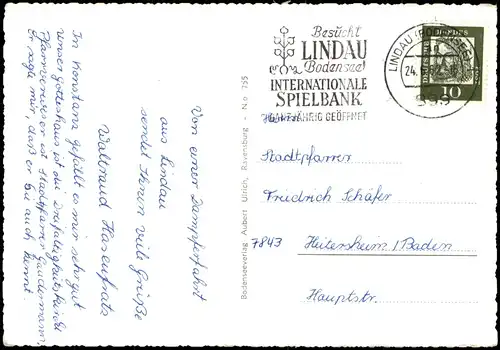 In Konstanz gefällt es mir sehr gut
unser Gotteshaus ist die Dreifaltigkeitskirche
Pfarrverweser ist Stadtpfarrer
Er sagte mir, daß er Sie auch kennt.
Von einer Dampferfahrt
aus Lindau
sendet Ihnen viele Grüße
Waltraud Hasenfratz
Bodenseeverlag Aubert Ulrich, Ravensburg - No 755
Besucht
LINDAU
Bodensee!
INTERNATIONALE
SPIELBANK
GANZJÄHRIG GEÖFFNET
LINDAU (BODENSEE)
24.
999
10
Herrn
Stadtpfarrer
Friedrich Schäfer
7843 Heitersheim / Baden
Hauptstr.